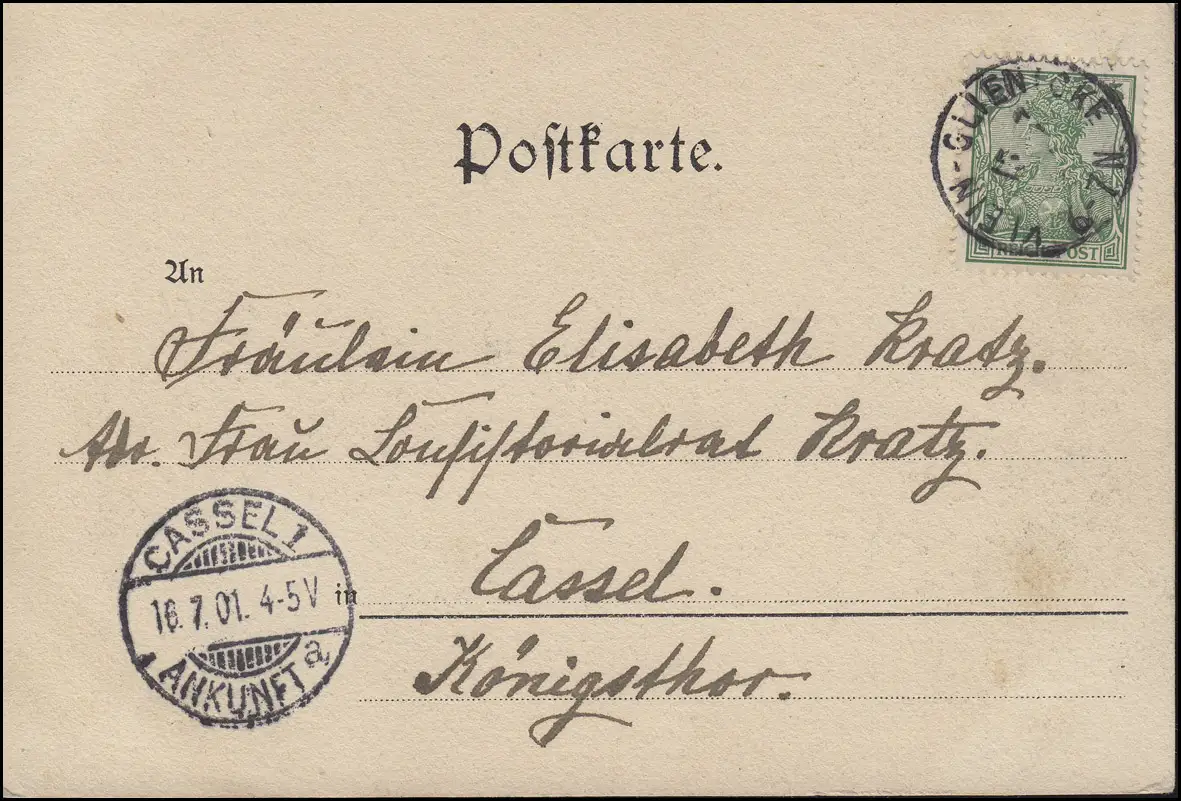 Postkarte.
KLEIN-GLIENICKE
6-7N
REICHSPOST
An
Fräulein Elisabeth Kratz.
Adr. Frau Consistorialrat Kratz.
CASSEL 1
16.7.01. 4-5V
ANKUNFT a.
in Cassel.
Königsthor.